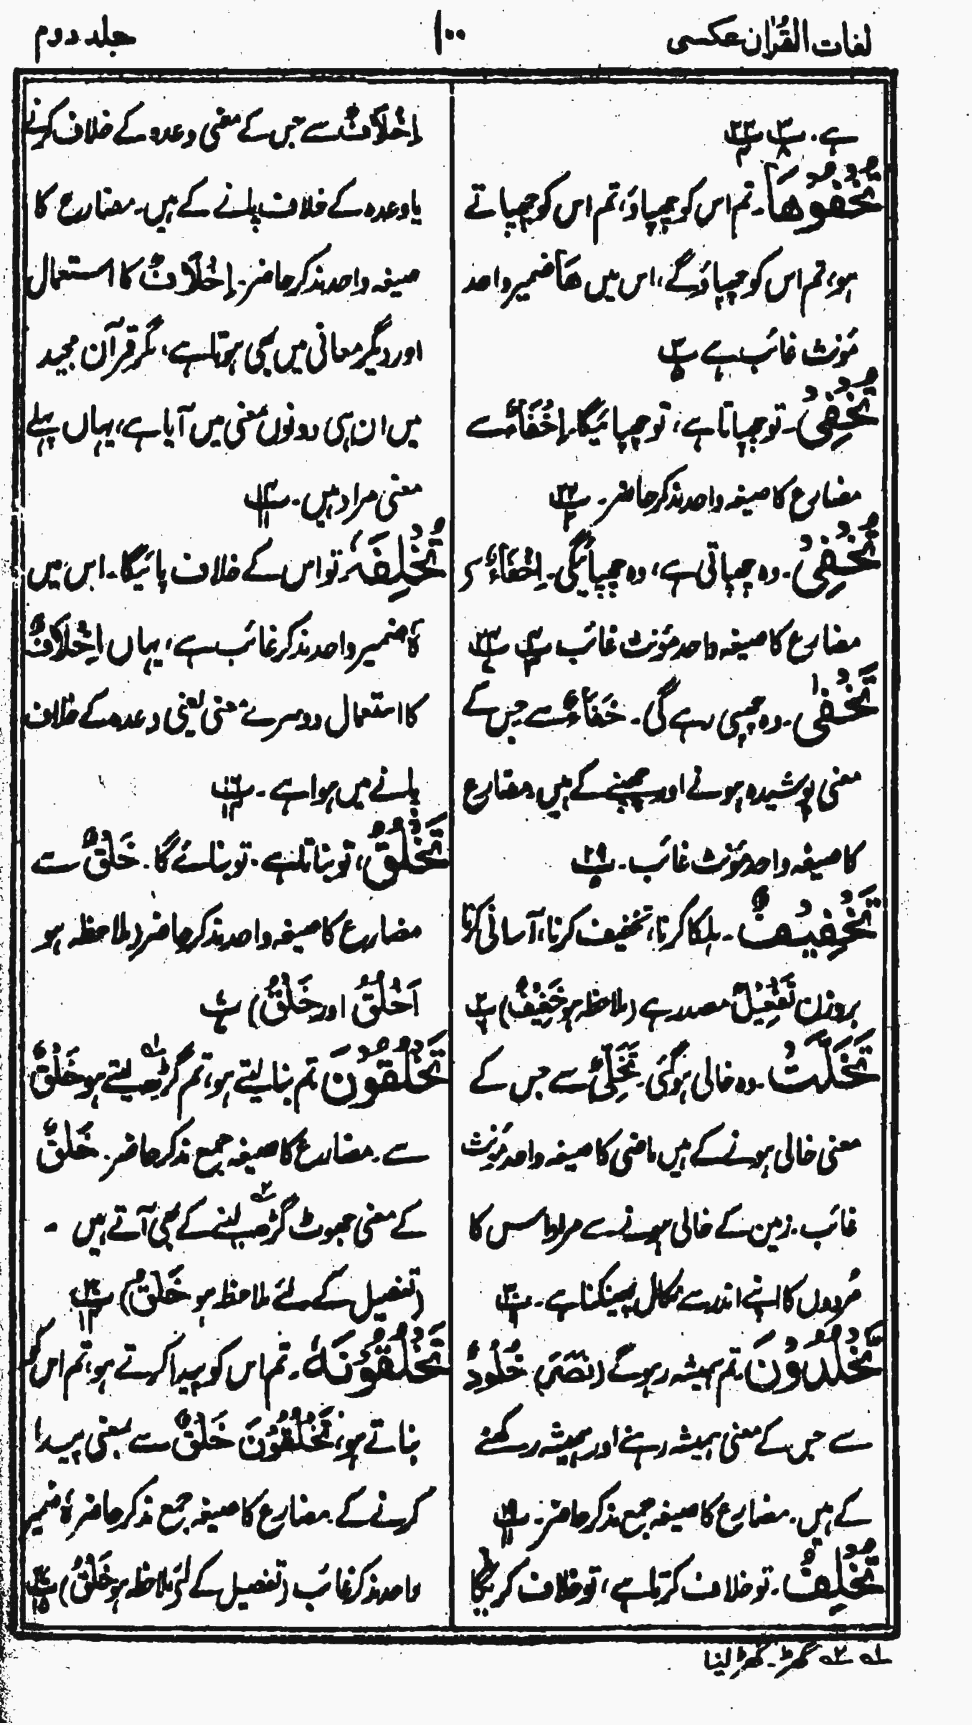 لغات القرآن عکسی
۱۰۰
جلد دوم
ہے۔
تُخْفُوْهَا۔ تم اس کو چھپاؤ، تم اس کو چھپاتے
ہو، تم اس کو چھپاؤ گے، اس میں هَا ضمیر واحد
مؤنث غائب ہے
تُخْفِیْ۔ تو چھپاتا ہے، تو چھپائیگا۔ اِخْفَاءٌ سے
مضارع کا صیغہ واحد مذکر حاضر۔
تُخْفِیْ۔ وہ چھپاتی ہے، وہ چھپائیگی۔ اِخْفَاءٌ سے
مضارع کا صیغہ واحد مؤنث غائب
تَخْفٰى۔ وہ چھپی رہے گی۔ خَفَاءٌ سے جس کے
معنی پوشیدہ ہونے اور چھپنے کے ہیں۔ مضارع
کا صیغہ واحد مؤنث غائب۔
تَخْفِیْفٌ۔ ہلکا کرنا، تخفیف کرنا، آسانی کرنا
بروزن تَفْعِیْلٌ مصدر ہے (ملاحظہ ہو خَفِیْفٌ)
تَخَلَّتْ۔ وہ خالی ہوگئی۔ تَخَلِّیٌ سے جس کے
معنی خالی ہونے کے ہیں ماضی کا صیغہ واحد مؤنث
غائب۔ زمین کے خالی ہونے سے مراد اس کا
مُردوں کا اپنے اندر سے نکال پھینکنا ہے۔
تَخْلُدُوْنَ۔ تم ہمیشہ رہو گے (نَصَرَ) خُلُوْدٌ
سے جس کے معنی ہمیشہ رہنے اور ہمیشہ رکھنے
کے ہیں۔ مضارع کا صیغہ جمع مذکر حاضر۔
تُخْلِفُ۔ تو خلاف کرتا ہے، تو خلاف کریگا
اِخْلَافٌ سے جس کے معنی وعدہ کے خلاف کرنے
یا وعدہ کے خلاف پانے کے ہیں۔ مضارع کا
صیغہ واحد مذکر حاضر۔ اِخْلَافٌ کا استعمال
اور دیگر معانی میں بھی ہوتا ہے، مگر قرآن مجید
میں ان ہی دونوں معنی میں آیا ہے، یہاں پہلے
معنی مراد ہیں۔
تُخْلَفَهٗ۔ تو اس کے خلاف پائیگا۔ اس میں
هٗ ضمیر واحد مذکر غائب ہے، یہاں اِخْلَافٌ
کا استعمال دوسرے معنی یعنی وعدہ کے خلاف
پانے میں ہوا ہے۔
تَخْلُقُ، تو بناتا ہے۔ تو بنائے گا۔ خَلْقٌ سے
مضارع کا صیغہ واحد مذکر حاضر (ملاحظہ ہو
اَخْلُقُ اور خَلْقٌ)
تَخْلُقُوْنَ تم بنا لیتے ہو، تم گھڑ لیتے ہو خَلْقٌ
سے۔ مضارع کا صیغہ جمع مذکر حاضر۔ خَلْقٌ
کے معنی جھوٹ گھڑ لینے کے بھی آتے ہیں
(تفصیل کے لئے ملاحظہ ہو خَلْقٌ)
تَخْلُقُوْنَهٗ۔ تم اس کو پیدا کرتے ہو، تم اس کو
بناتے ہو، تَخْلُقُوْنَ خَلْقٌ سے بمعنی پیدا
کرنے کے۔ مضارع کا صیغہ جمع مذکر حاضر هٗ ضمیر
واحد مذکر غائب (تفصیل کے لئے ملاحظہ ہو خَلْقٌ)
لہ ۲ہ گھڑ۔ گھڑ لینا